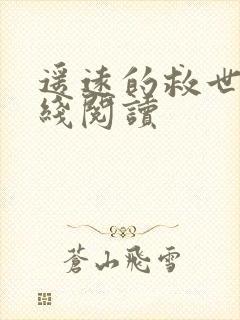 遥远的救世
綫閱讀
蒼山飛雪